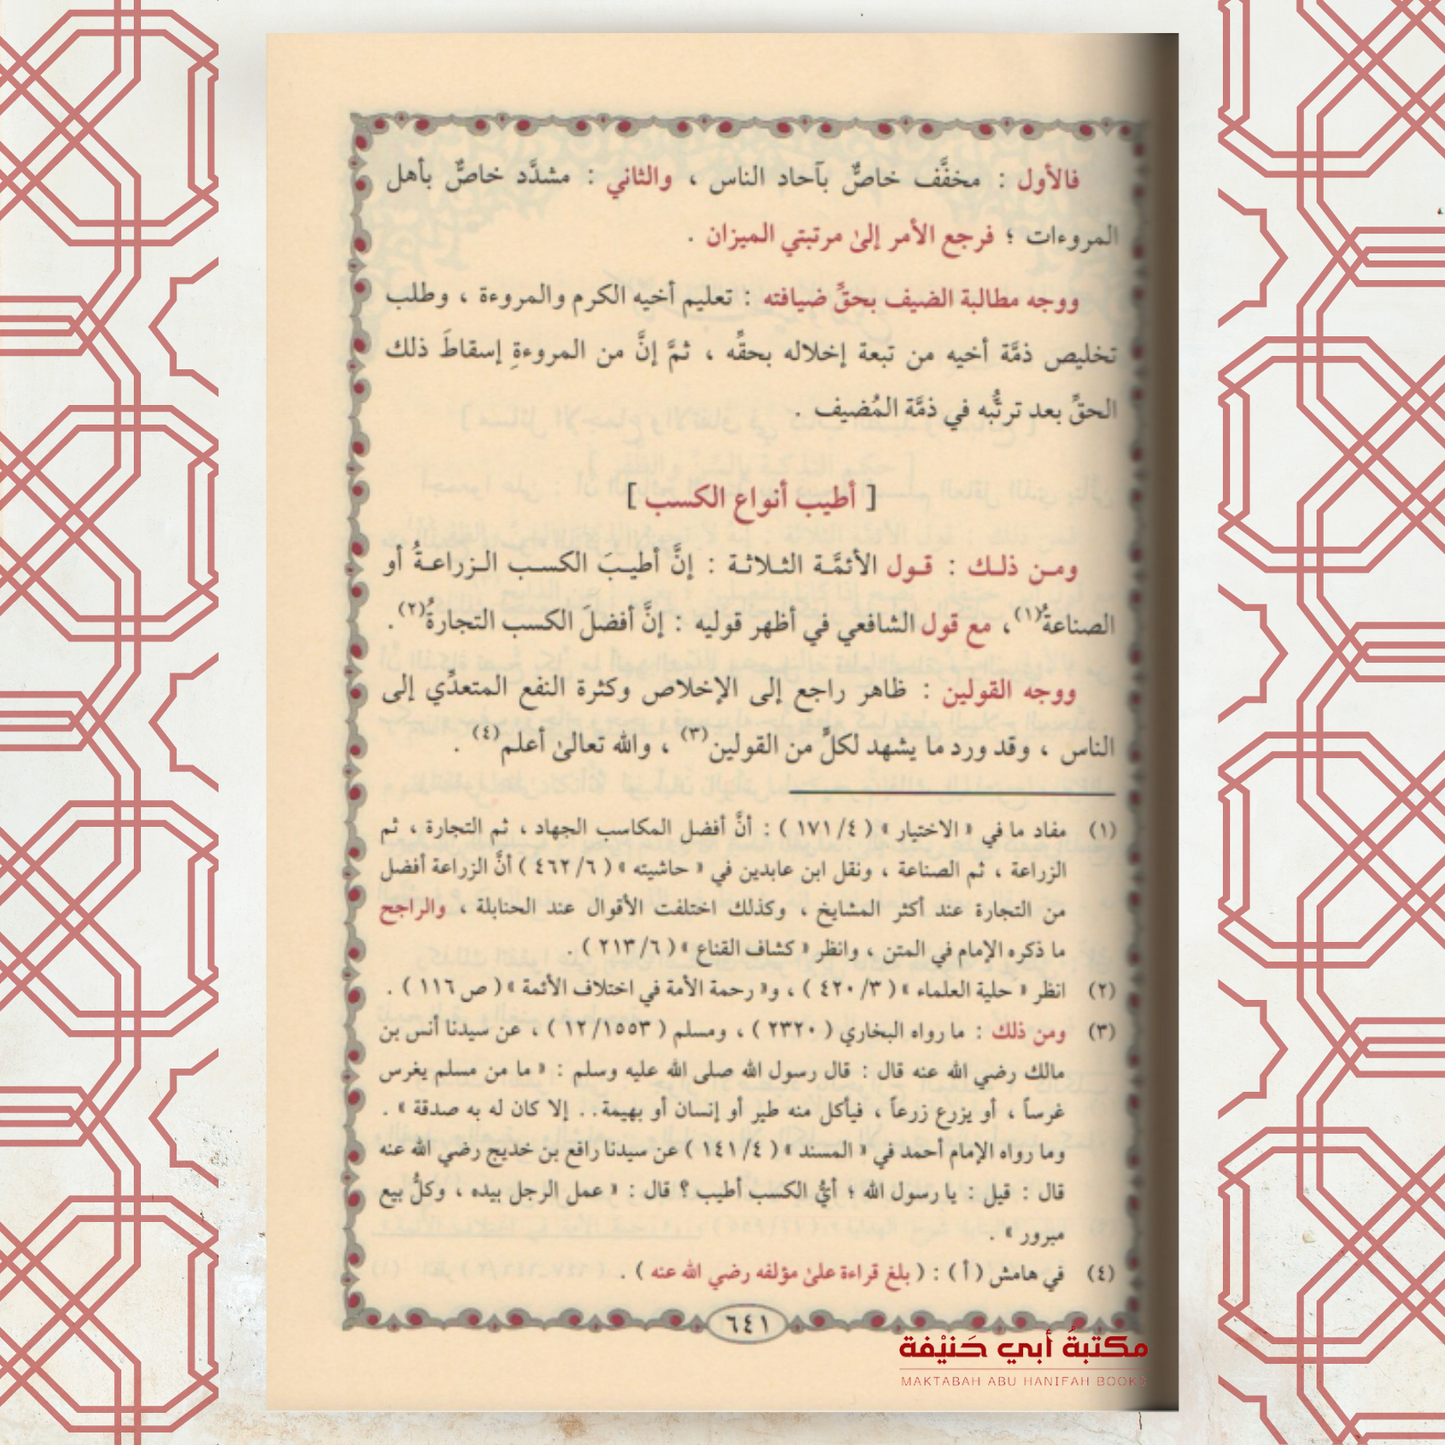 فالأول : مخفَّف خاصٌّ بآحاد الناس ، والثاني : مشدَّد خاصٌّ بأهل
المروءات ؛ فرجع الأمر إلىٰ مرتبتي الميزان .
ووجه مطالبة الضيف بحقِّ ضيافته : تعليم أخيه الكرم والمروءة ، وطلب
تخليص ذمَّة أخيه من تبعة إخلاله بحقِّه ، ثمَّ إنَّ من المروءةِ إسقاطَ ذلك
الحقِّ بعد ترتُّبه في ذمَّة المُضيف .
[ أطيب أنواع الكسب ]
ومـن ذلـك : قـول الأئمَّـة الثـلاثـة : إنَّ أطيـبَ الكسـب الـزراعـةُ أو
الصناعةُ(١)، مع قول الشافعي في أظهر قوليه : إنَّ أفضلَ الكسب التجارةُ(٢).
ووجه القولين : ظاهر راجع إلى الإخلاص وكثرة النفع المتعدِّي إلى
الناس ، وقد ورد ما يشهد لكلٍّ من القولين(٣) ، والله تعالىٰ أعلم(٤) .
(١) مفاد ما في « الاختيار » ( ٤/ ١٧١ ) : أنَّ أفضل المكاسب الجهاد ، ثم التجارة ، ثم
الزراعة ، ثم الصناعة ، ونقل ابن عابدين في « حاشيته » ( ٦/ ٤٦٢ ) أنَّ الزراعة أفضل
من التجارة عند أكثر المشايخ ، وكذلك اختلفت الأقوال عند الحنابلة ، والراجح
ما ذكره الإمام في المتن ، وانظر « كشاف القناع » ( ٦/ ٢١٣ ) .
(٢) انظر « حلية العلماء » ( ٣/ ٤٢٠ ) ، و« رحمة الأمة في اختلاف الأئمة » ( ص ١١٦ ) .
(٣) ومن ذلك : ما رواه البخاري ( ٢٣٢٠ ) ، ومسلم ( ١٥٥٣/ ١٢ ) ، عن سيدنا أنس بن
مالك رضي الله عنه قال : قال رسول الله صلى الله عليه وسلم : « ما من مسلم يغرس
غرساً ، أو يزرع زرعاً ، فيأكل منه طير أو إنسان أو بهيمة.. إلا كان له به صدقة » .
وما رواه الإمام أحمد في « المسند » ( ٤/ ١٤١ ) عن سيدنا رافع بن خديج رضي الله عنه
قال : قيل : يا رسول الله ؛ أيُّ الكسب أطيب ؟ قال : « عمل الرجل بيده ، وكلُّ بيع
مبرور » .
(٤) في هامش ( أ ) : ( بلغ قراءة علىٰ مؤلفه رضي الله عنه ) .
٦٤١
مكتبةُ أبي حَنيْفة
MAKTABAH ABU HANIFAH BOOKS